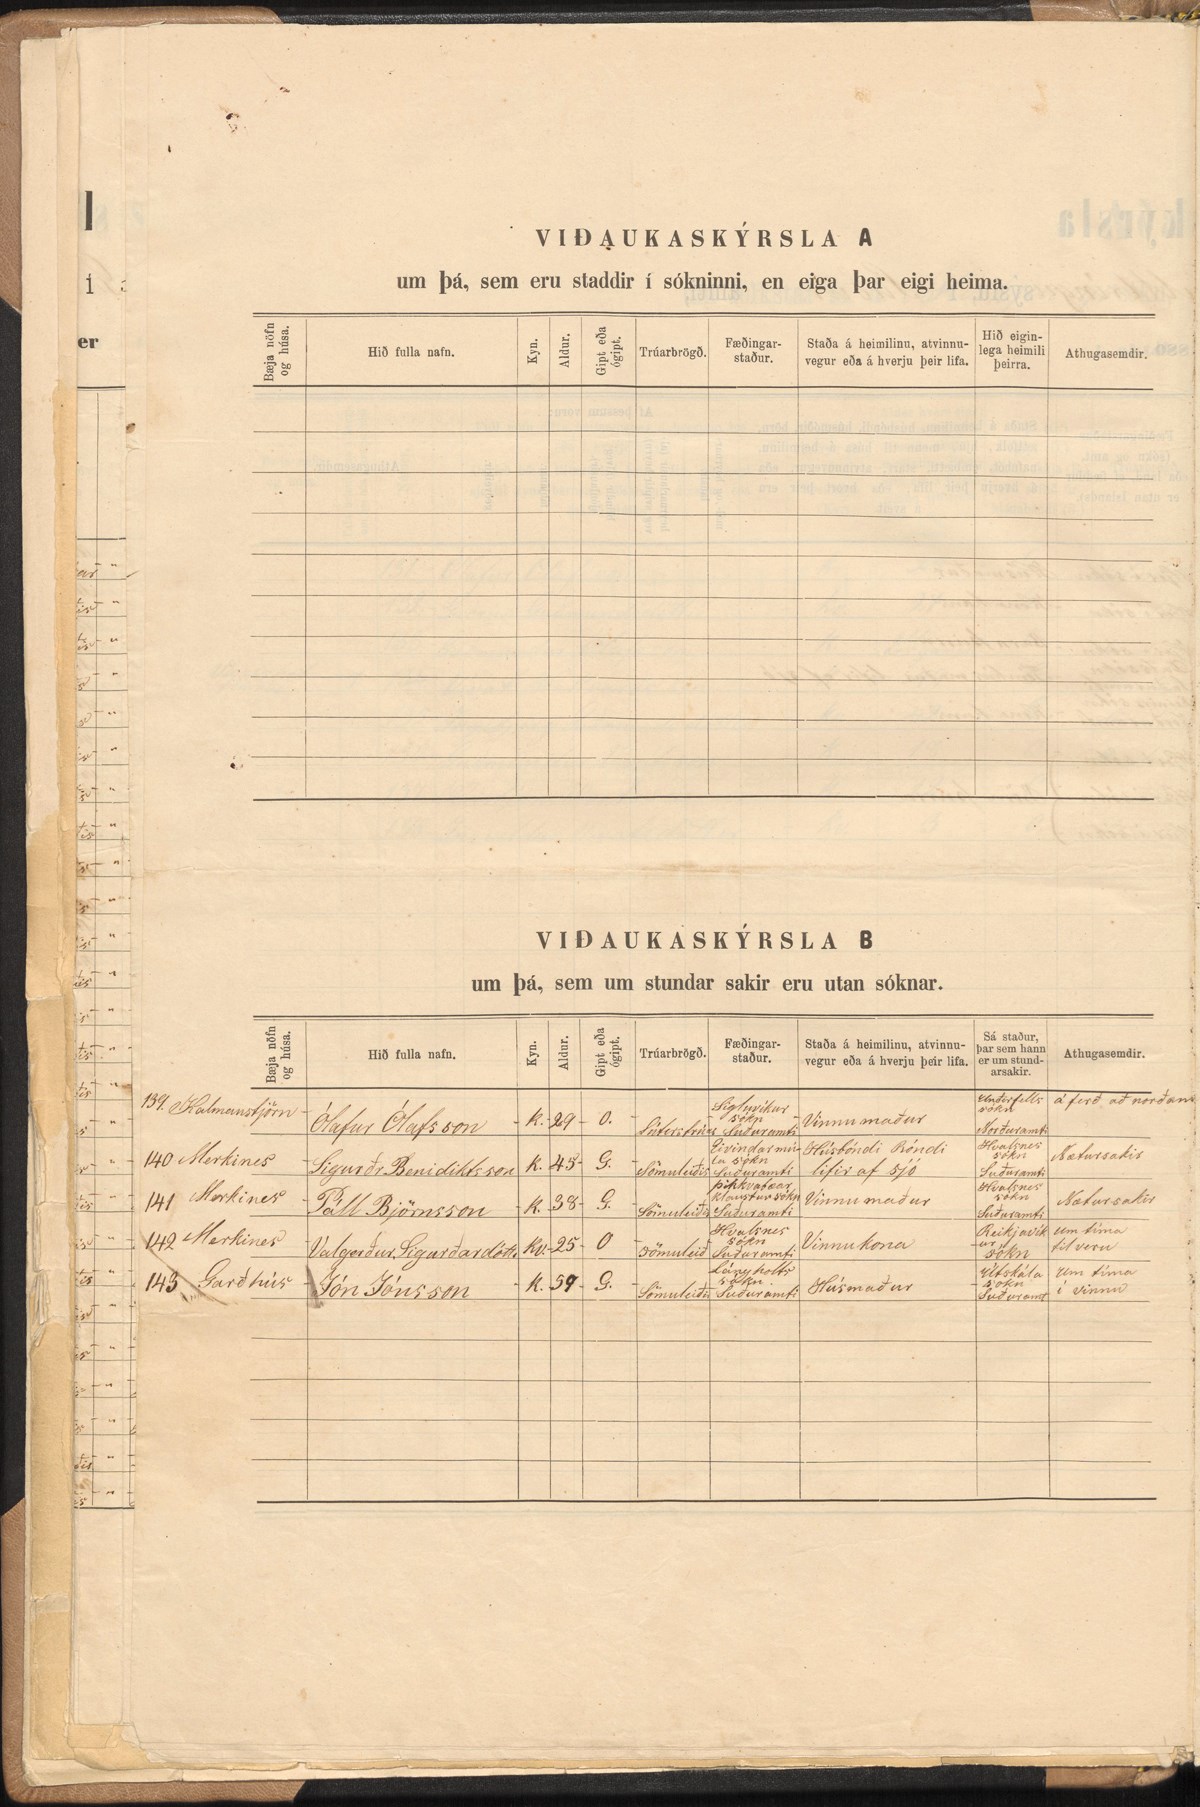 VIÐAUKASKÝRSLA A
um þá, sem eru staddir í sókninni, en eiga þar eigi heima.
Bæja nöfn og húsa.
Hið fulla nafn.
Kyn.
Aldur.
Gipt eða ógipt.
Trúarbrögð.
Fæðingar-
staður.
Staða á heimilinu, atvinnu-
vegur eða á hverju þeir lifa.
Hið eigin-
lega heimili
þeirra.
Athugasemdir.
VIÐAUKASKÝRSLA B
um þá, sem um stundar sakir eru utan sóknar.
Bæja nöfn og húsa.
Hið fulla nafn.
Kyn.
Aldur.
Gipt eða ógipt.
Trúarbrögð.
Fæðingar-
staður.
Staða á heimilinu, atvinnu-
vegur eða á hverju þeir lifa.
Sá staður,
þar sem hann
er um stund-
arsakir.
Athugasemdir.
139. Kalmanstjörn Ólafur Ólafsson K. 29 O. sókn Suðuramti Vinnumaður sókn Norðuramti á ferð að norðan
140 Merkines Sigurðr Benidiktsson K. 45 G. Sömuleiðis sókn Suðuramti Húsbóndi Bóndi lifir af sjó Hvalsnes sókn Suðuramti Nætursakir
141 Merkines Páll Björnsson K. 38 G. Sömuleiðis klaustursókn Suðuramti Vinnumaður Hvalsnes sókn Suðuramti Nætursakir
142 Merkines Valgerður Sigurðardóttir Kv. 25 O Sömuleið Hvalsnes sókn Suðuramti Vinnukona Reikjavik ur sókn um tíma til veru
143 Garðhús Jón Jónsson K. 59 G. Sömuleiðis sókn Suðuramti Húsmaður Útskála sókn Suðuramt um tíma í vinnu